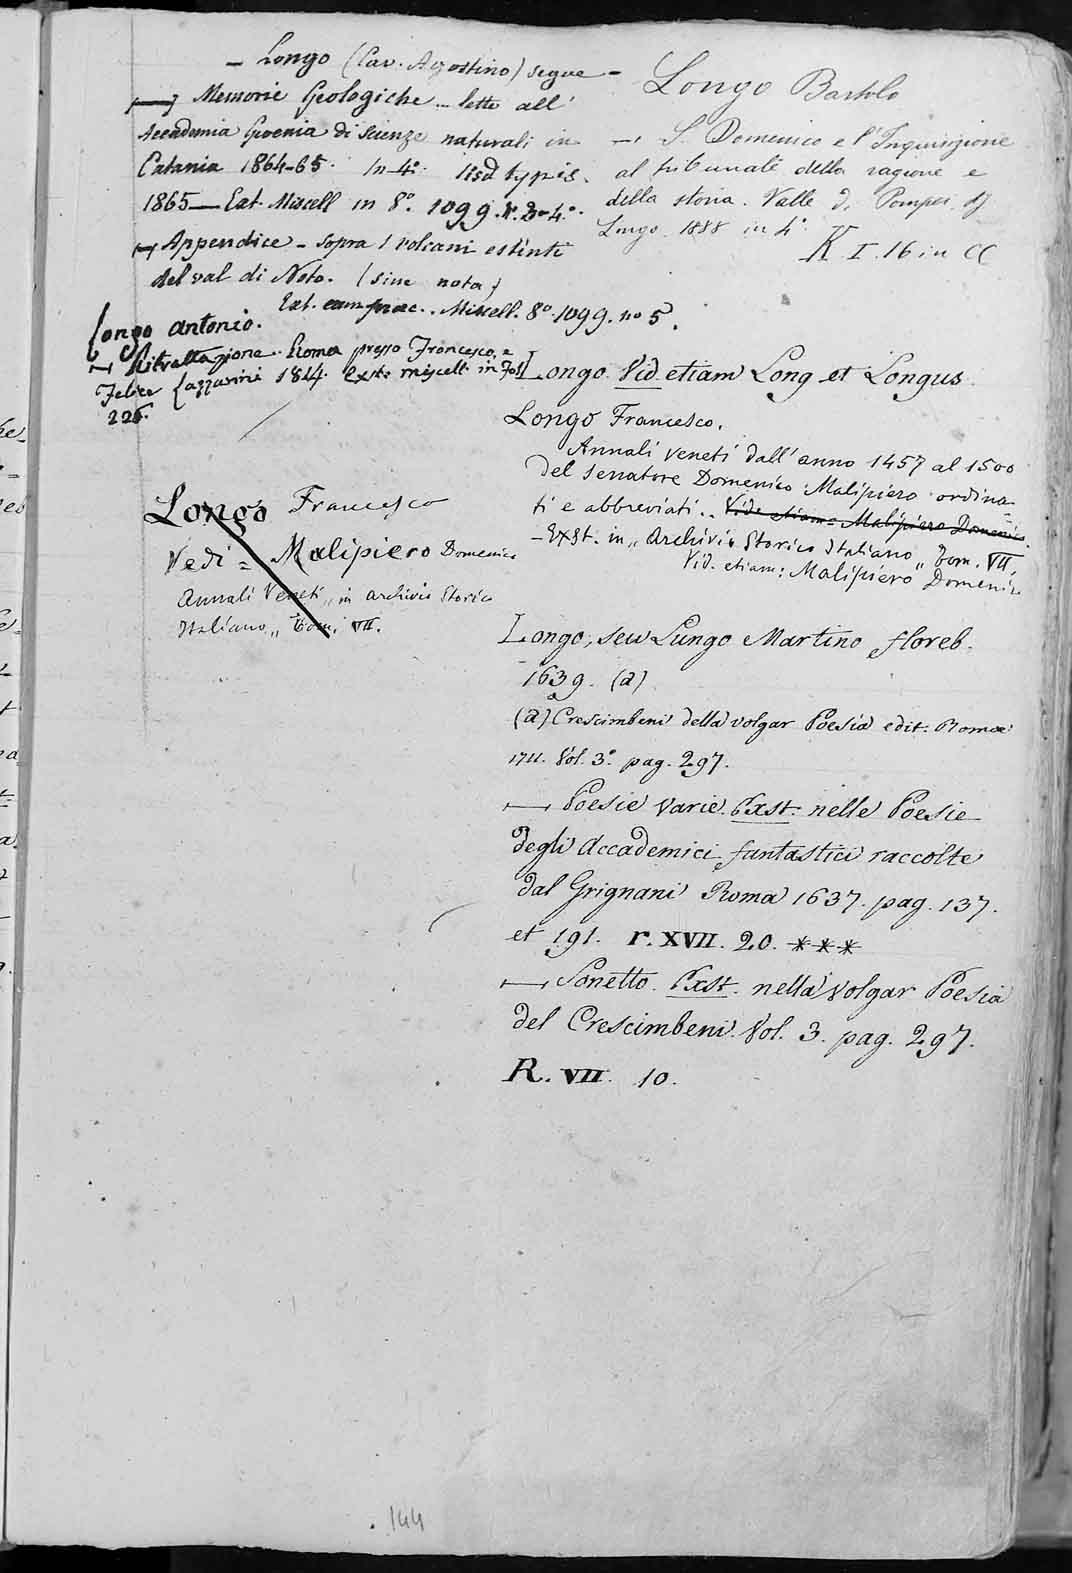 – Longo (Cav. Agostino) segue –
Memorie Geologiche – lette all'
Accademia Gioenia di Scienze naturali in
Catania 1864-65. In 4º. typis.
1865 – Ext. Miscell in 8º. 1099. nº. 3-4º.
Appendice – sopra i volcani estinti
del val di Noto. (sine nota)
Ext. cum præc. Miscell. 8º 1099. nº 5.
Longo Antonio.
Ritrattazione. Roma presso Francesco, e
Felice Lazzarini 1814. Exst: miscell. in Fol
226.
Longo Francesco
Vedi = Malipiero Domenico
Annali Veneti „ in Archivio Storico
Italiano „ Tom. VII.
Longo Bartolo
– S. Domenico e l'Inquisizione
al tribunale della ragione e
della storia. Valle di Pompei,
Longo 1888 in 4º.
K. I. 16 in CC
Longo Vid. etiam Long et Longus
Longo Francesco.
Annali veneti dall'anno 1457 al 1500
del senatore Domenico Malipiero ordina-
ti e abbreviati. Vid. etiam = Malipiero Domenico.
– Exst. in „ Archivio Storico Italiano „ Tom. VII.
Vid. etiam: Malipiero Domenico
Longo, seu Lungo Martino floreb.
1639. (a)
(a) Crescimbeni della volgar Poesia edit. Romæ
1711. Vol. 3º. pag. 297.
Poesie varie. Exst. nelle Poesie
degli Accademici fantastici raccolte
dal Grignani Roma 1637. pag. 137.
et 191. r. XVII. 20. ***
Sonetto. Exst. nella volgar Poesia
del Crescimbeni. Vol. 3. pag. 297.
R. VII. 10.
144